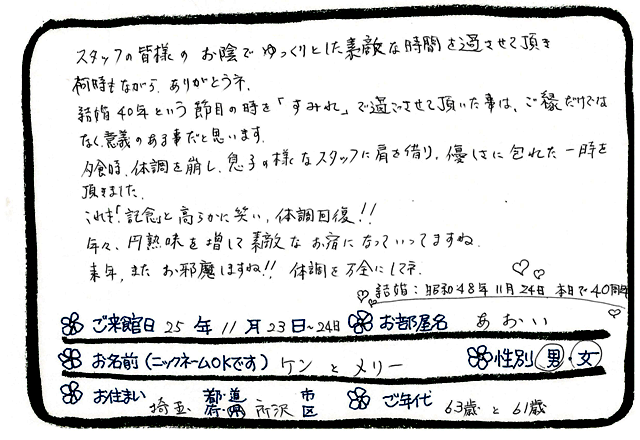 スタッフの皆様のお陰でゆっくりとした素敵な時間を過させて頂き
何時もながら、ありがとうネ.
結婚40年という節目の時を「すみれ」で過ごさせて頂いた事は、ご縁だけでは
なく意義のある事だと思います.
夕食時、体調を崩し、息子の様なスタッフに肩を借り、優しさに包れた一時を
頂きました.
これも「記念」と高らかに笑い、体調回復!!
年々、円熟味を増して素敵なお宿になっていってますね.
来年、またお邪魔しますね!! 体調を万全にしてネ.
結婚:昭和48年11月24日 本日で40周年
ご来館日 25年11月23日~24日 お部屋名 あおい
お名前(ニックネームOKです) ケンとメリー 性別 男・女
お住まい 埼玉 都・道・府・県 所沢 市区 ご年代 63歳と61歳